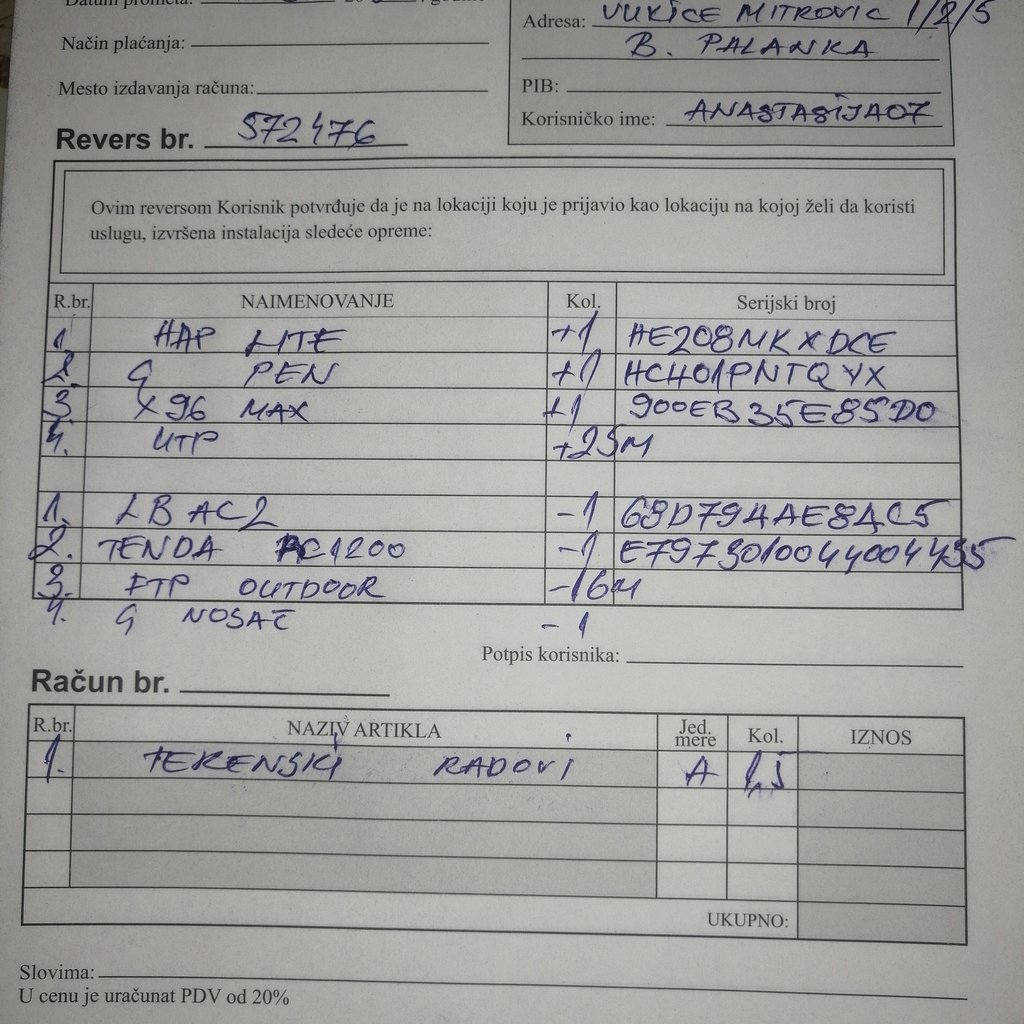 Datum prometa: 20 godine
Način plaćanja:
Mesto izdavanja računa:
Adresa: VUKICE MITROVIC 1/2/5
B. PALANKA
PIB:
Korisničko ime: ANASTASIJA07
Revers br. 572476
Ovim reversom Korisnik potvrđuje da je na lokaciji koju je prijavio kao lokaciju na kojoj želi da koristi
uslugu, izvršena instalacija sledeće opreme:
R.br. NAIMENOVANJE Kol. Serijski broj
1. HAP LITE +1 HE208MKXDCE
2. G PEN +1 HCH01PNTQYX
3. X96 MAX +1 900EB35E85D0
4. UTP +25M
1. LB AC2 -1 68D794AE8AC5
2. TENDA AC1200 -1
3. FTP OUTDOOR -16M
4. G NOSAČ -1
Potpis korisnika:
Račun br.
R.br. NAZIV ARTIKLA Jed. mere Kol. IZNOS
1. TERENSKI RADOVI A 1,5
UKUPNO:
Slovima:
U cenu je uračunat PDV od 20%